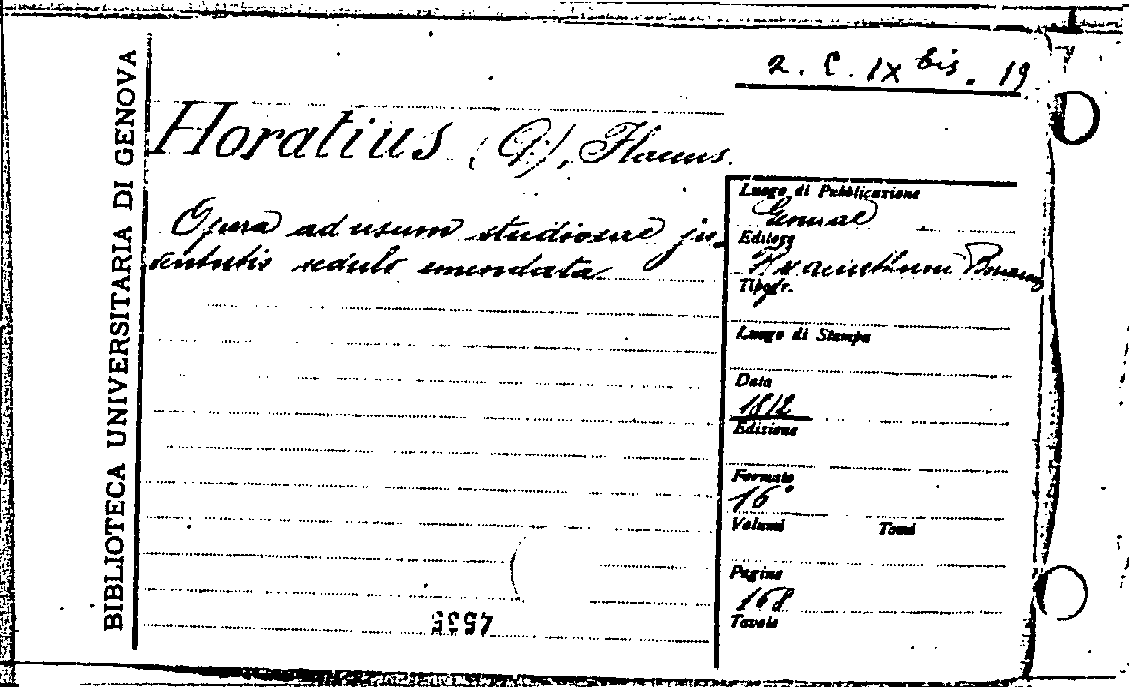 2. C. IX bis. 19
BIBLIOTECA UNIVERSITARIA DI GENOVA
Horatius (Q), Flaccus.
Opera ad usum studiosae ju-
ventutis sedulo emendata
Luogo di Pubblicazione
Genuae
Editore
Hyacinthum
Tipogr.
Luogo di Stampa
Data
1812
Edizione
Formato
16°
Volumi Tomi
Pagine
168
Tavole